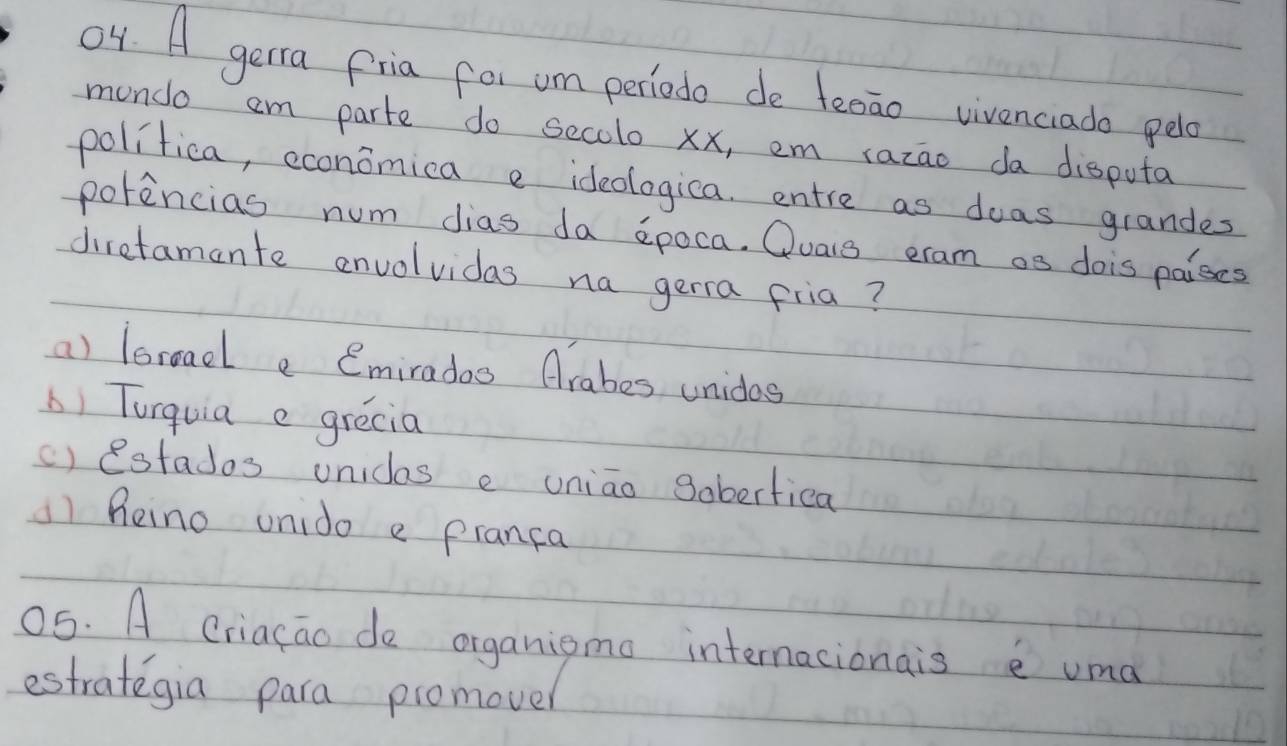 04. A gerra fria foi um período de tesão vivenciado pelo
mundo em parte do seculo XX, em razão da disputa
política, econômica e ideologica. entre as duas grandes
potências num dias da época. Quais eram os dois países
diretamente envolvidas na gerra fria?
a) Israel e Emirados Árabes unidos
b) Turquia e grécia
c) Estados unidos e união sobertica
d) Reino unido e frança
05. A criação de organismo internacionais é uma
estratégia para promover